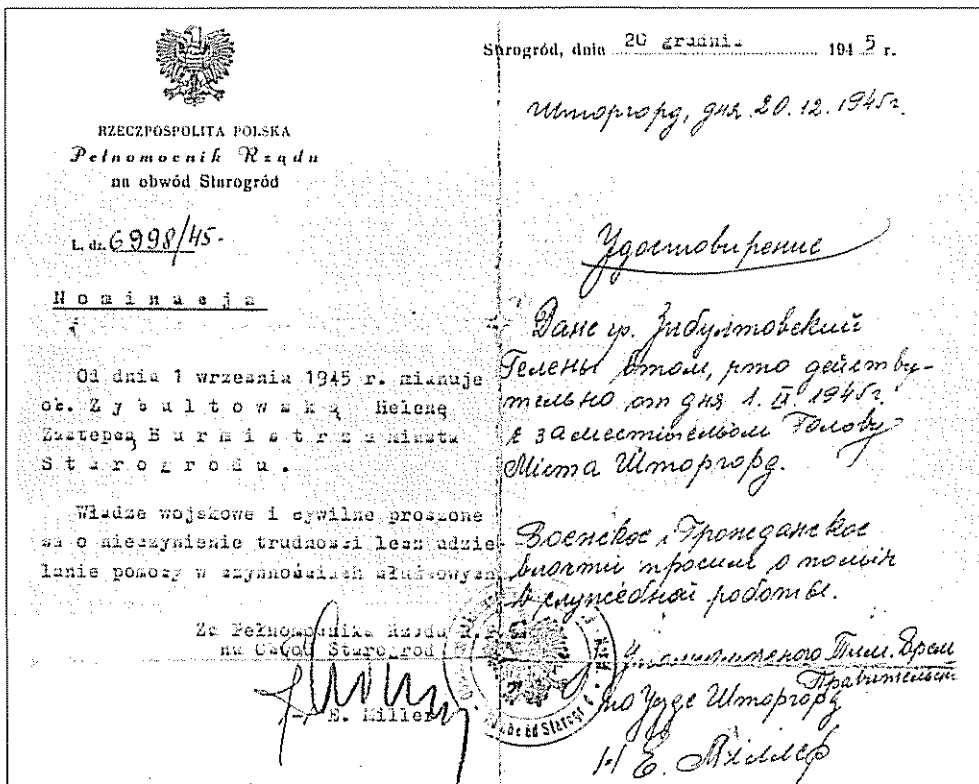 RZECZPOSPOLITA POLSKA
Pełnomocnik Rządu
na obwód Starogród
L. dz. 6998/45.
Nominacja
Od dnia 1 września 1945 r. mianuje
ob. Zybultowską Helenę
Zastępcą Burmistrza miasta
Starogrodu.
Władze wojskowe i cywilne proszone
są o nieczynienie trudności lecz udzie-
lanie pomocy w czynnościach służbowych
Za Pełnomocnika Rządu R.P.
na Obwód Starogród
/-/ E. Miller
Starogród, dnia 20 grudnia 1945 r.
Шторгорд, дня 20.12.1945г.
Удостовирение
Дане гр. Зибултовский
Гелены втом, что действу-
тельно от дня 1. IX 1945г.
є заместительом Голову
Міста Шторгорд.
Военское и Гронеданское
власти просим о помін
в служебной работве.
Тим. Врем
Правительси
по Узде Шторгорд
/-/ Е. Миллер